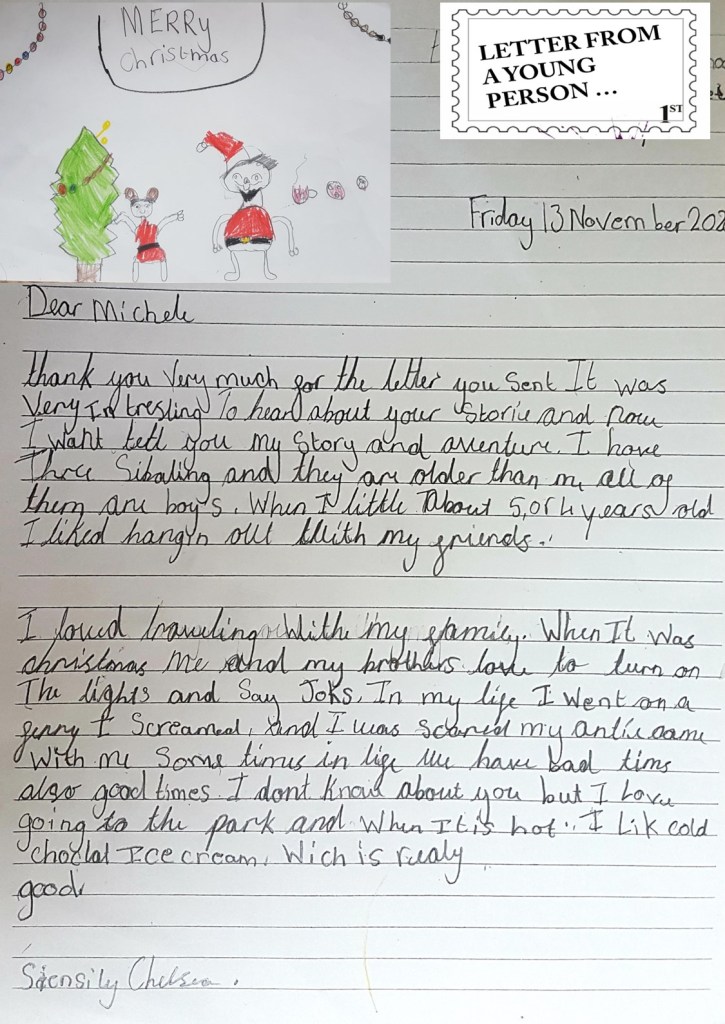 MERRY
Christmas
LETTER FROM
A YOUNG
PERSON ...
1ST
Friday 13 November 202
Dear Michele
thank you Very much for the letter you Sent It was
Very In tresling To hear about your Storie and now
I want tell you my Story and aventure. I have
Three Sibaling and they are older than me all of
them are boy's. When I little about 5,or 4 years old
I liked hang'n out With my friends.
I loved traveling Withe my family. When It was
christmas Me and my brothers love to turn on
The lights and Say Joks. In my life I went on a
ferry I Screamed, and I was Scared my antie came
With me Some times in life We have bad tims
also good times I dont know about you but I Love
going to the park and When It is hot. I Lik cold
choclat Ice cream. Wich is realy
good.
Sicnsily Chelsea.